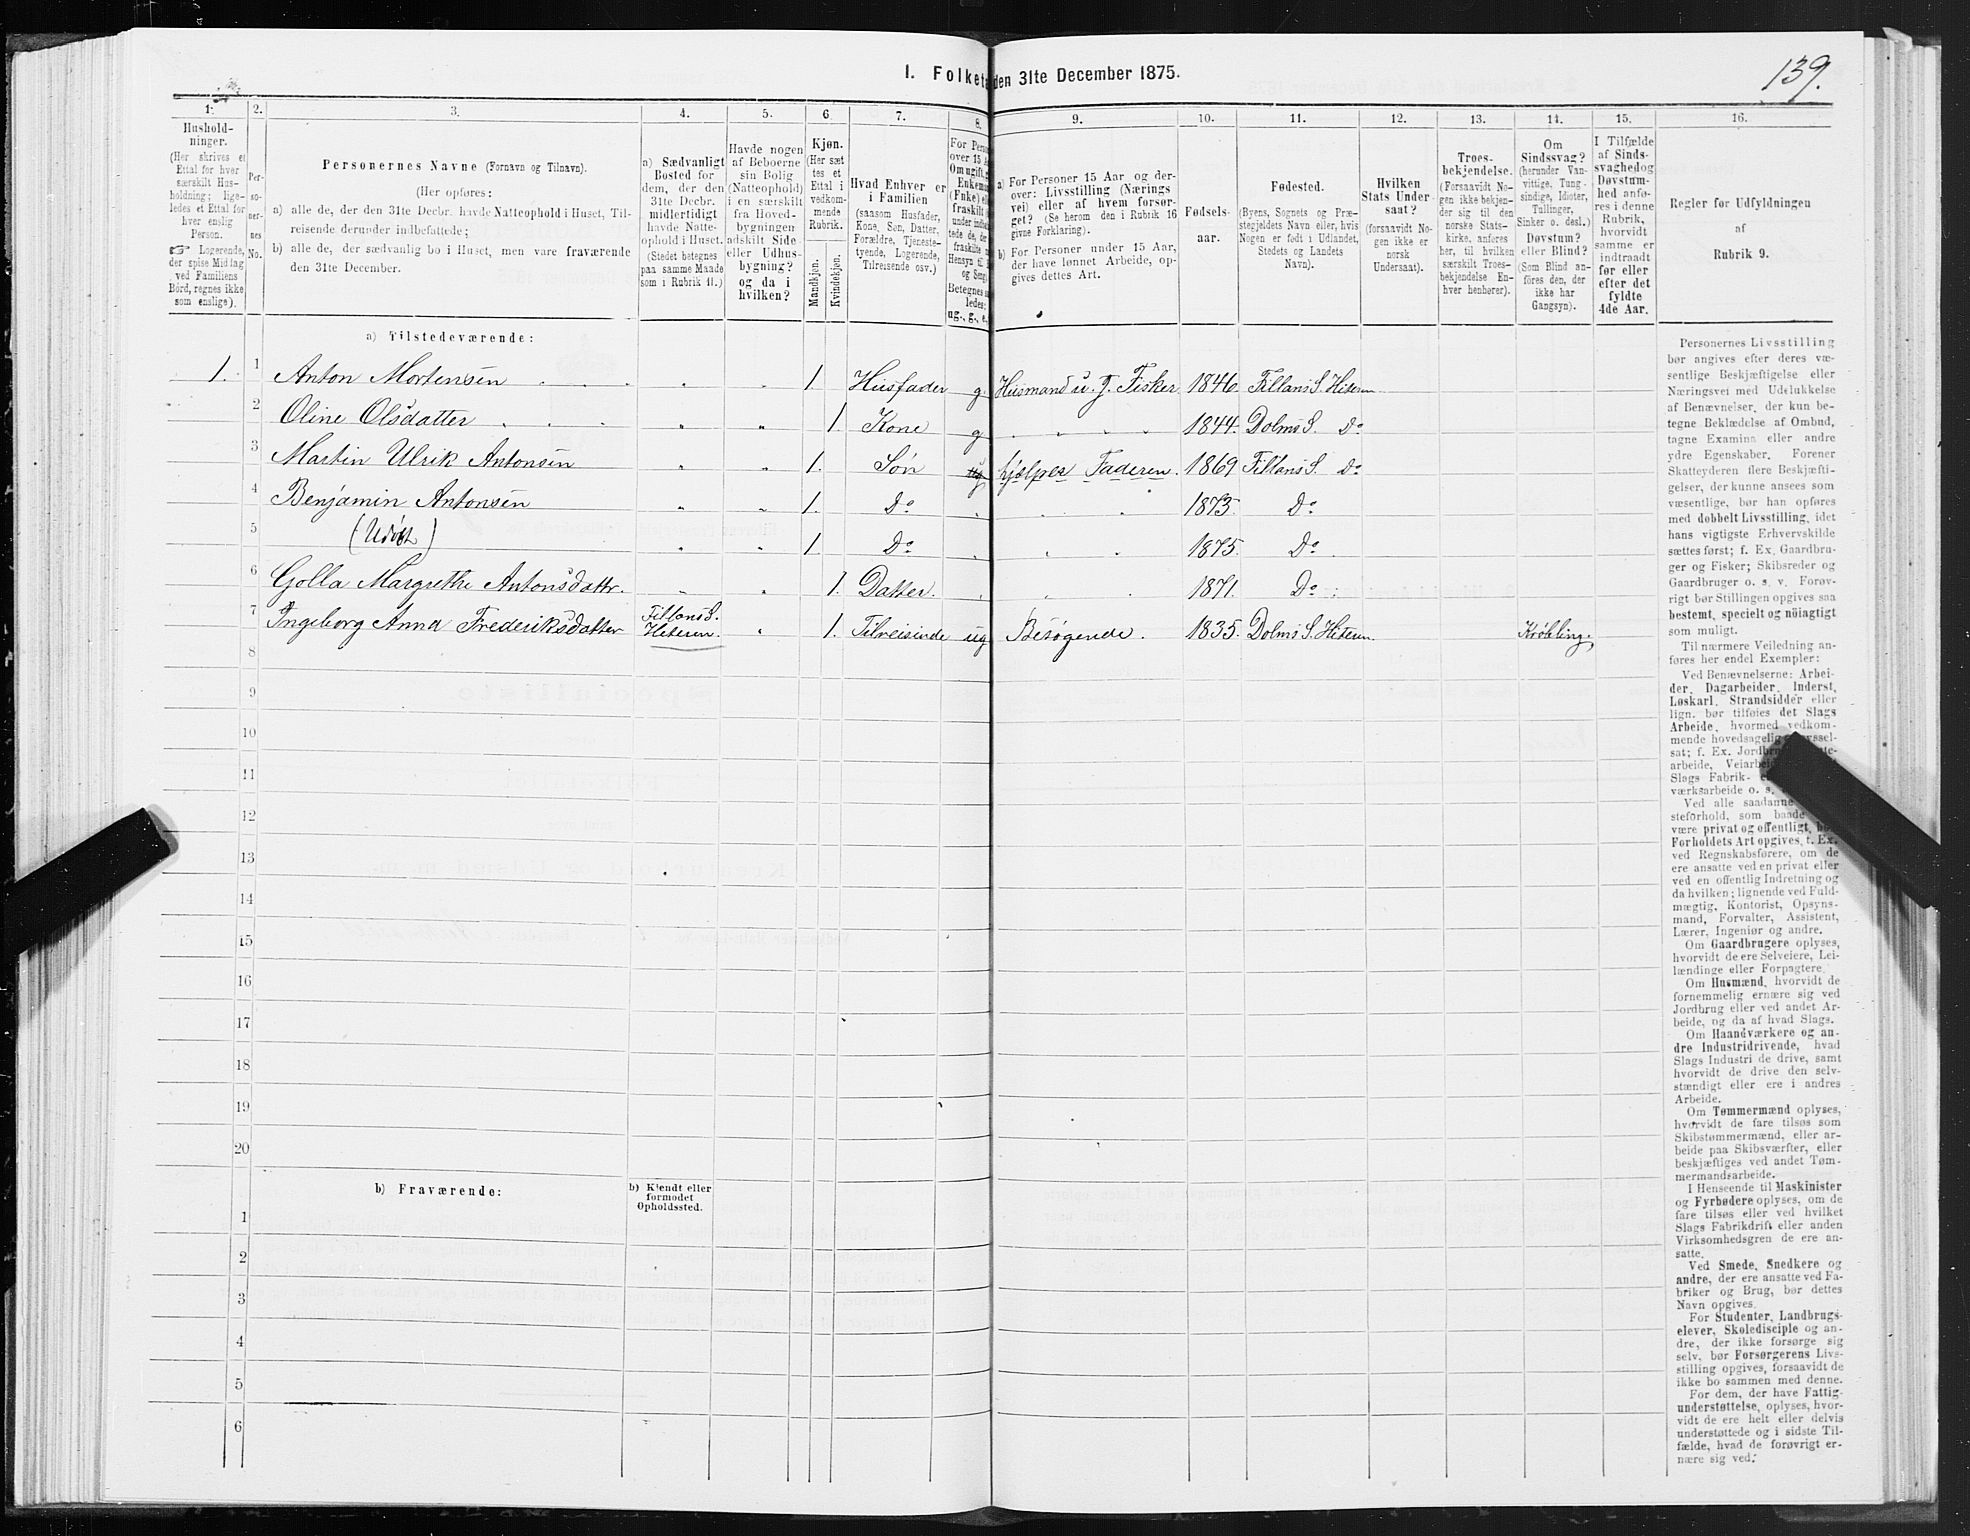 139.
I. Folketæ den 31te December 1875.
1. 2. 3. 4. 5. 6. 7. 8. 9. 10. 11. 12. 13. 14. 15. 16.
Hushold-
ninger.
(Her skrives et
Ettal for hver
særskilt Hus-
holdning; lige-
ledes et Ettal for
hver enslig
Person.
☞ Logerende,
der spise Middag
ved Familiens
Bord, regnes ikke
som enslige).
Per-
so-
ner-
nes
No.
Personernes Navne (Fornavn og Tilnavn).
(Her opføres:
a) alle de, der den 31te Decbr. havde Natteophold i Huset, Til-
reisende derunder indbefattede;
b) alle de, der sædvanlig bo i Huset, men vare fraværende
den 31te December.
a) Sædvanligt
Bosted for
dem, der den
31te Decbr.
midlertidigt
havde Natte-
ophold i Huset.
(Stedet betegnes
paa samme Maade
som i Rubrik 11.)
Havde nogen
af Beboerne
sin Bolig
(Natteophold)
i en særskilt
fra Hoved-
bygningen
adskilt Side-
eller Udhus-
bygning?
og da i
hvilken?
Kjøn.
(Her sæt-
tes et
Ettal i
vedkom-
mende
Rubrik.
Mandkjøn.
Kvindekjøn.
Hvad Enhver er
i Familien
(saasom Husfader,
Kone, Søn, Datter,
Forældre, Tjeneste-
tyende, Logerende,
Tilreisende osv.)
For Perso
over 15 A
Om ugift, g
Enkema
(Enke) el
fraskilt
under indbe
tede de, der
fraskilte
Hensyn til
og Seng.
Betegnes sa
ledes:
ug., g., e.,
a) For Personer 15 Aar og der-
over: Livsstilling (Nærings
vei) eller af hvem forsør-
get? (Se herom den i Rubrik 16
givne Forklaring).
b) For Personer under 15 Aar,
der have lønnet Arbeide, op-
gives dettes Art.
Fødsels-
aar.
Fødested.
(Byens, Sognets og Præ-
stegjeldets Navn eller, hvis
Nogen er født i Udlandet,
Stedets og Landets
Navn).
Hvilken
Stats Under-
saat?
(forsaavidt No-
gen ikke er
norsk
Undersaat).
Troes-
bekjendelse.
(Forsaavidt No-
gen ikke bekjen-
der sig til den
norske Stats-
kirke, anføres
her, til hvilken
særskilt Troes-
bekjendelse En-
hver henhører).
Om
Sindssvag?
(herunder Van-
vittige, Tung-
sindige, Idioter,
Tullinger,
Sinker o. desl.)
Døvstum?
eller Blind?
(Som Blind an-
føres den, der
ikke har
Gangsyn).
I Tilfælde
af Sinds-
svaghed og
Døvstum-
hed anfø-
res i denne
Rubrik,
hvorvidt
samme er
indtraadt
før eller
efter det
fyldte
4de Aar.
Regler for Udfyldningen
af
Rubrik 9.
a) Tilstedeværende:
1. 1 Anton Mortensen " " 1. Husfader g. Husmand u. J. Fisker 1846. Fillans S. Hiteren
2 Oline Olsdatter " " 1. Kone g 1844. Dolms S. Do
3 Martin Ulrik Antonsen " " 1. Søn ug hjælper Faderen. 1869 Fillans S. Do
4 Benjamin Antonsen " " 1. Do 1873. Do
5 (Udøbt) " " 1. Do 1875. Do
6 Golla Margrethe Antonsdattr. " " 1. Datter. 1871. Do
7 Ingeborg Anna Frederiksdatter Fillans S. Hiteren. " 1. Tilreisinde ug Besøgende. 1835. Dolms S. Hiteren. Krøbling.
8
9
10
11
12
13
14
15
16
17
18
19
20
b) Fraværende:
b) Kjendt eller
formodet
Opholdssted.
1
2
3
4
5
6
Personernes Livsstilling
bør angives efter deres væ-
sentlige Beskjæftigelse eller
Næringsvei med Udelukkelse
af Benævnelser, der kun be-
tegne Beklædelse af Ombud,
tagne Examina eller andre
ydre Egenskaber. Forener
Skatteyderen flere Beskjæfti-
gelser, der kunne ansees som
væsentlige, bør han opføres
med dobbelt Livsstilling, idet
hans vigtigste Erhvervskilde
sættes først; f. Ex. Gaardbru-
ger og Fisker; Skibsreder og
Gaardbruger o. s. v. Forøv-
rigt bør Stillingen opgives saa
bestemt, specielt og nöiagtigt
som muligt.
Til nærmere Veiledning an-
føres her endel Exempler:
Ved Benævnelserne: Arbei-
der, Dagarbeider, Inderst,
Løskarl, Strandsidder eller
lign. bør tilføies det Slags
Arbeide, hvormed vedkom-
mende hovedsagelig
sat; f. Ex.
arbeide,
Slags Fabrik-
værksarbeide o. s.
Ved alle saadanne
steforhold, som baade
være privat og offentligt, bør
Forholdets Art opgives, t. Ex.
ved Regnskabsførere, om de
ere ansatte ved en privat eller
ved en offentlig Indretning og
da hvilken; lignende ved Fuld-
mægtig, Kontorist, Opsyns-
mand, Forvalter, Assistent,
Lærer, Ingeniør og andre.
Om Gaardbrugere oplyses,
hvorvidt de ere Selveiere, Lei-
lændinge eller Forpagtere.
Om Husmænd, hvorvidt de
fornemmelig ernære sig ved
Jordbrug eller ved andet Ar-
beide, og da af hvad Slags.
Om Haandværkere og an-
dre Industridrivende, hvad
Slags Industri de drive, samt
hvorvidt de drive den selv-
stændigt eller ere i andres
Arbeide.
Om Tømmermænd oplyses,
hvorvidt de fare tilsøs som
Skibstømmermænd, eller ar-
beide paa Skibsværfter, eller
beskjæftiges ved andet Tøm-
mermandsarbeide.
I Henseende til Maskinister
og Fyrbødere oplyses, om de
fare tilsøs eller ved hvilket
Slags Fabrikdrift eller anden
Virksomhedsgren de ere an-
satte.
Ved Smede, Snedkere og
andre, der ere ansatte ved Fa-
briker og Brug, bør dettes
Navn opgives.
For Studenter, Landbrugs-
elever, Skoledisciple og an-
dre, der ikke forsørge sig
selv, bør Forsørgerens Livs-
stilling opgives, forsaavidt de
ikke bo sammen med denne.
For dem, der have Fattig-
understøttelse, oplyses, hvor-
vidt de ere helt eller delvis
understøttede og i sidste Til-
fælde, hvad de forøvrigt er-
nære sig ved.